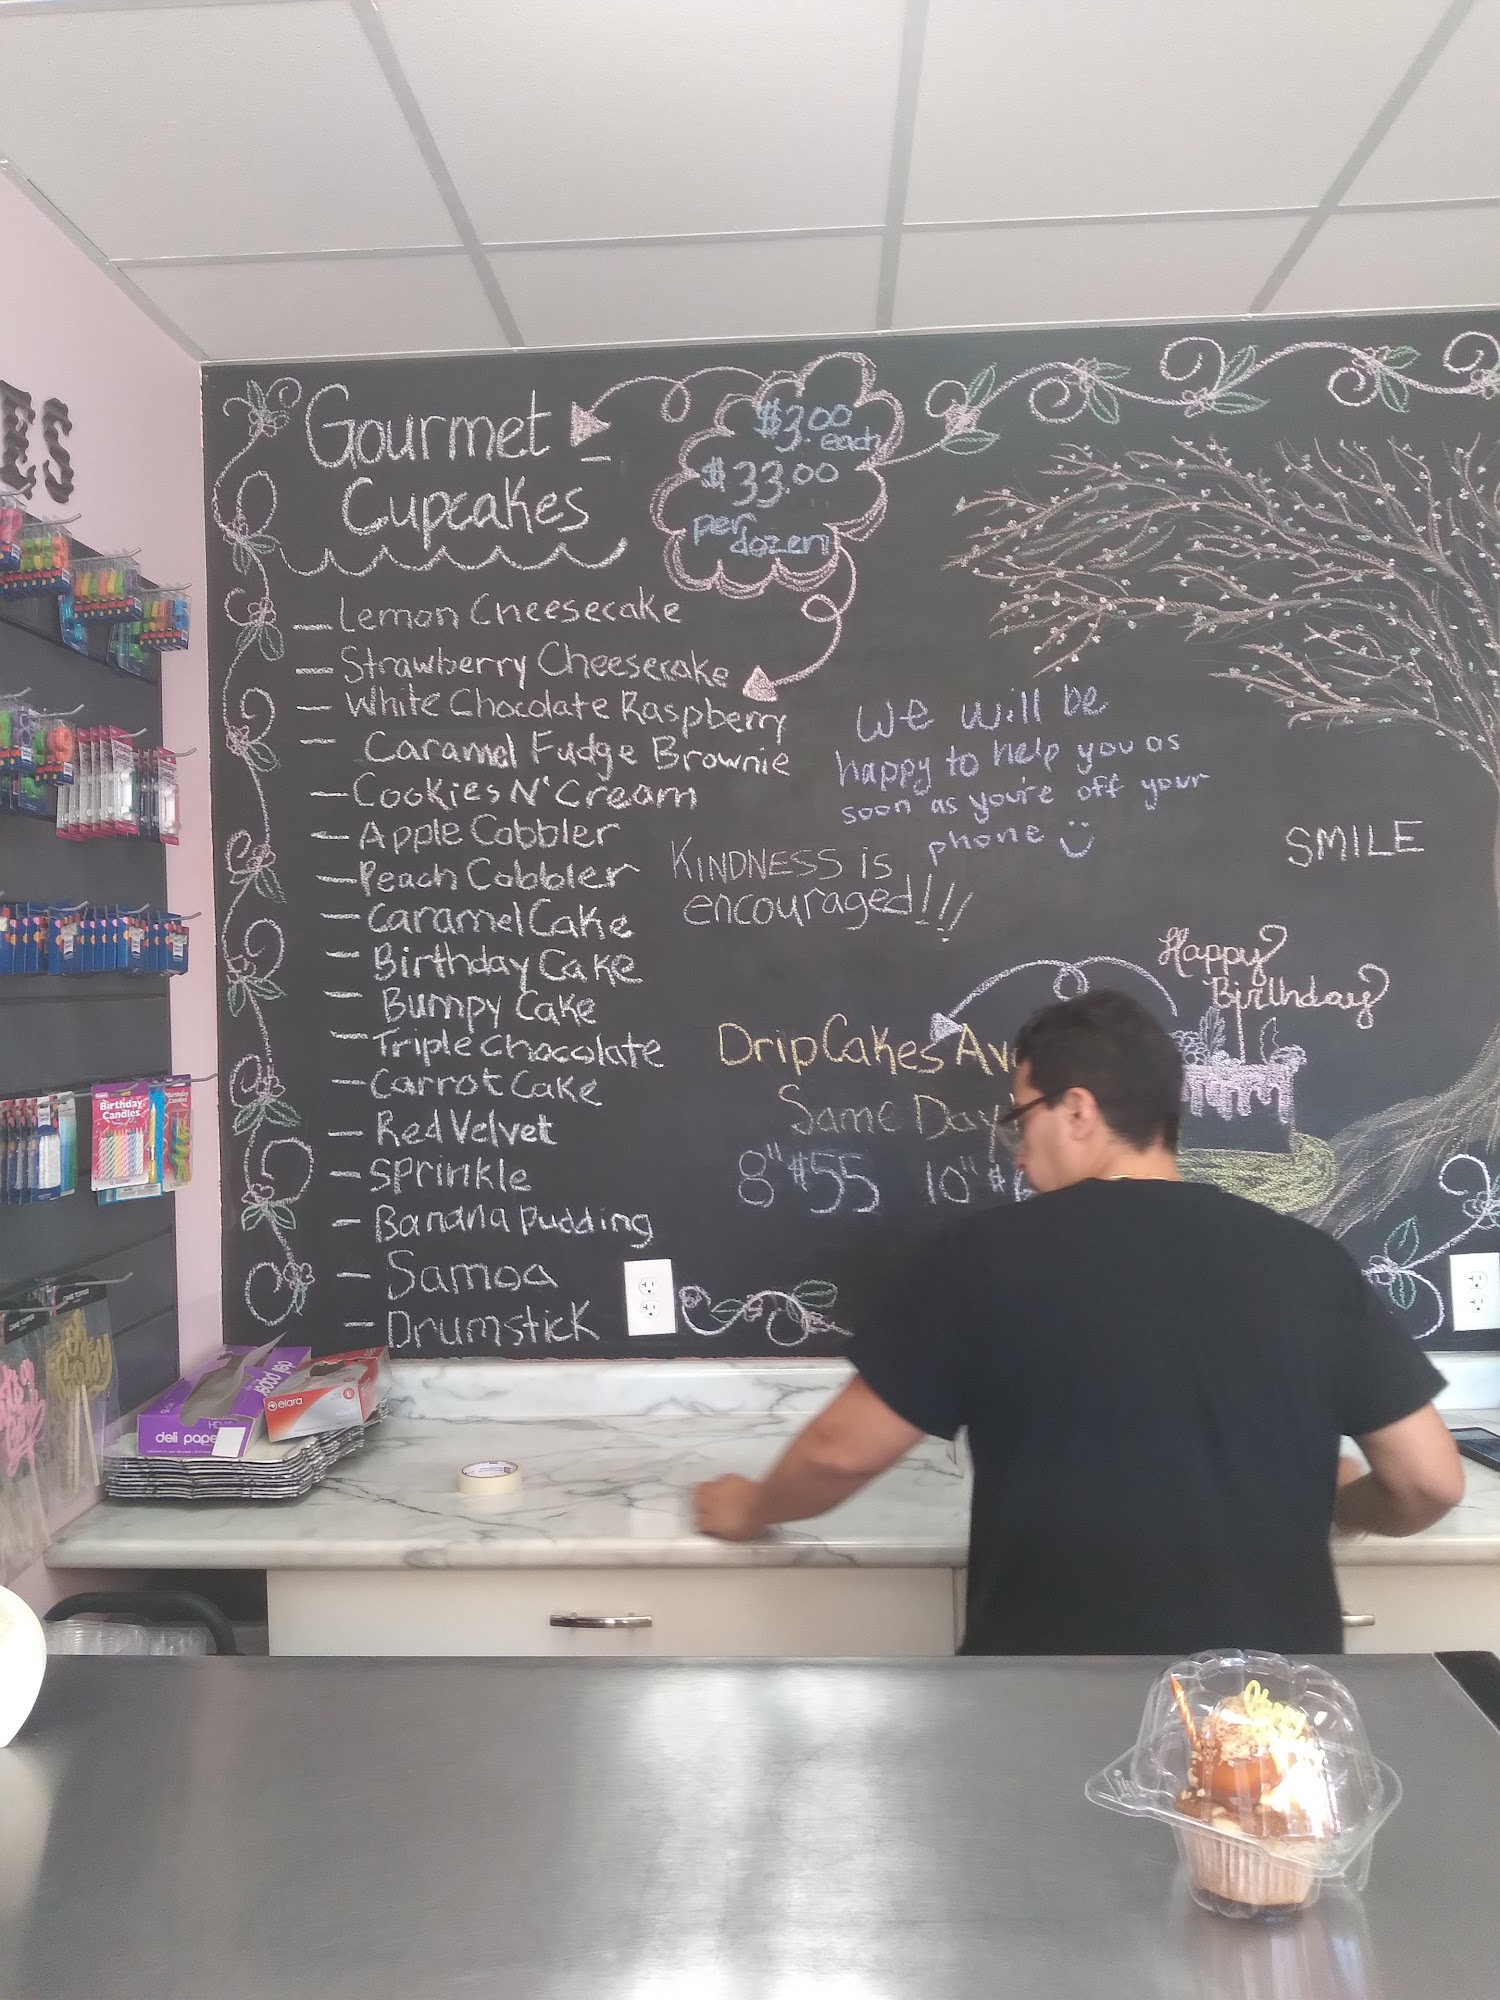 ES
Gourmet
Cupcakes
$3.00
each
$33.00
per
dozen
Lemon Cheesecake
Strawberry Cheesecake
White Chocolate Raspberry
Caramel Fudge Brownie
Cookies N' Cream
Apple Cobbler
Peach Cobbler
Caramel Cake
Birthday Cake
Bumpy Cake
Triple Chocolate
Carrot Cake
Red Velvet
Sprinkle
Banana Pudding
Samoa
Drumstick
We will be
happy to help you as
soon as you're off your
phone
KINDNESS is
encouraged!!!
SMILE
Happy
Birthday
Drip Cakes
Same Day
8" $55 10" $
Birthday
Candles
deli paper
elara